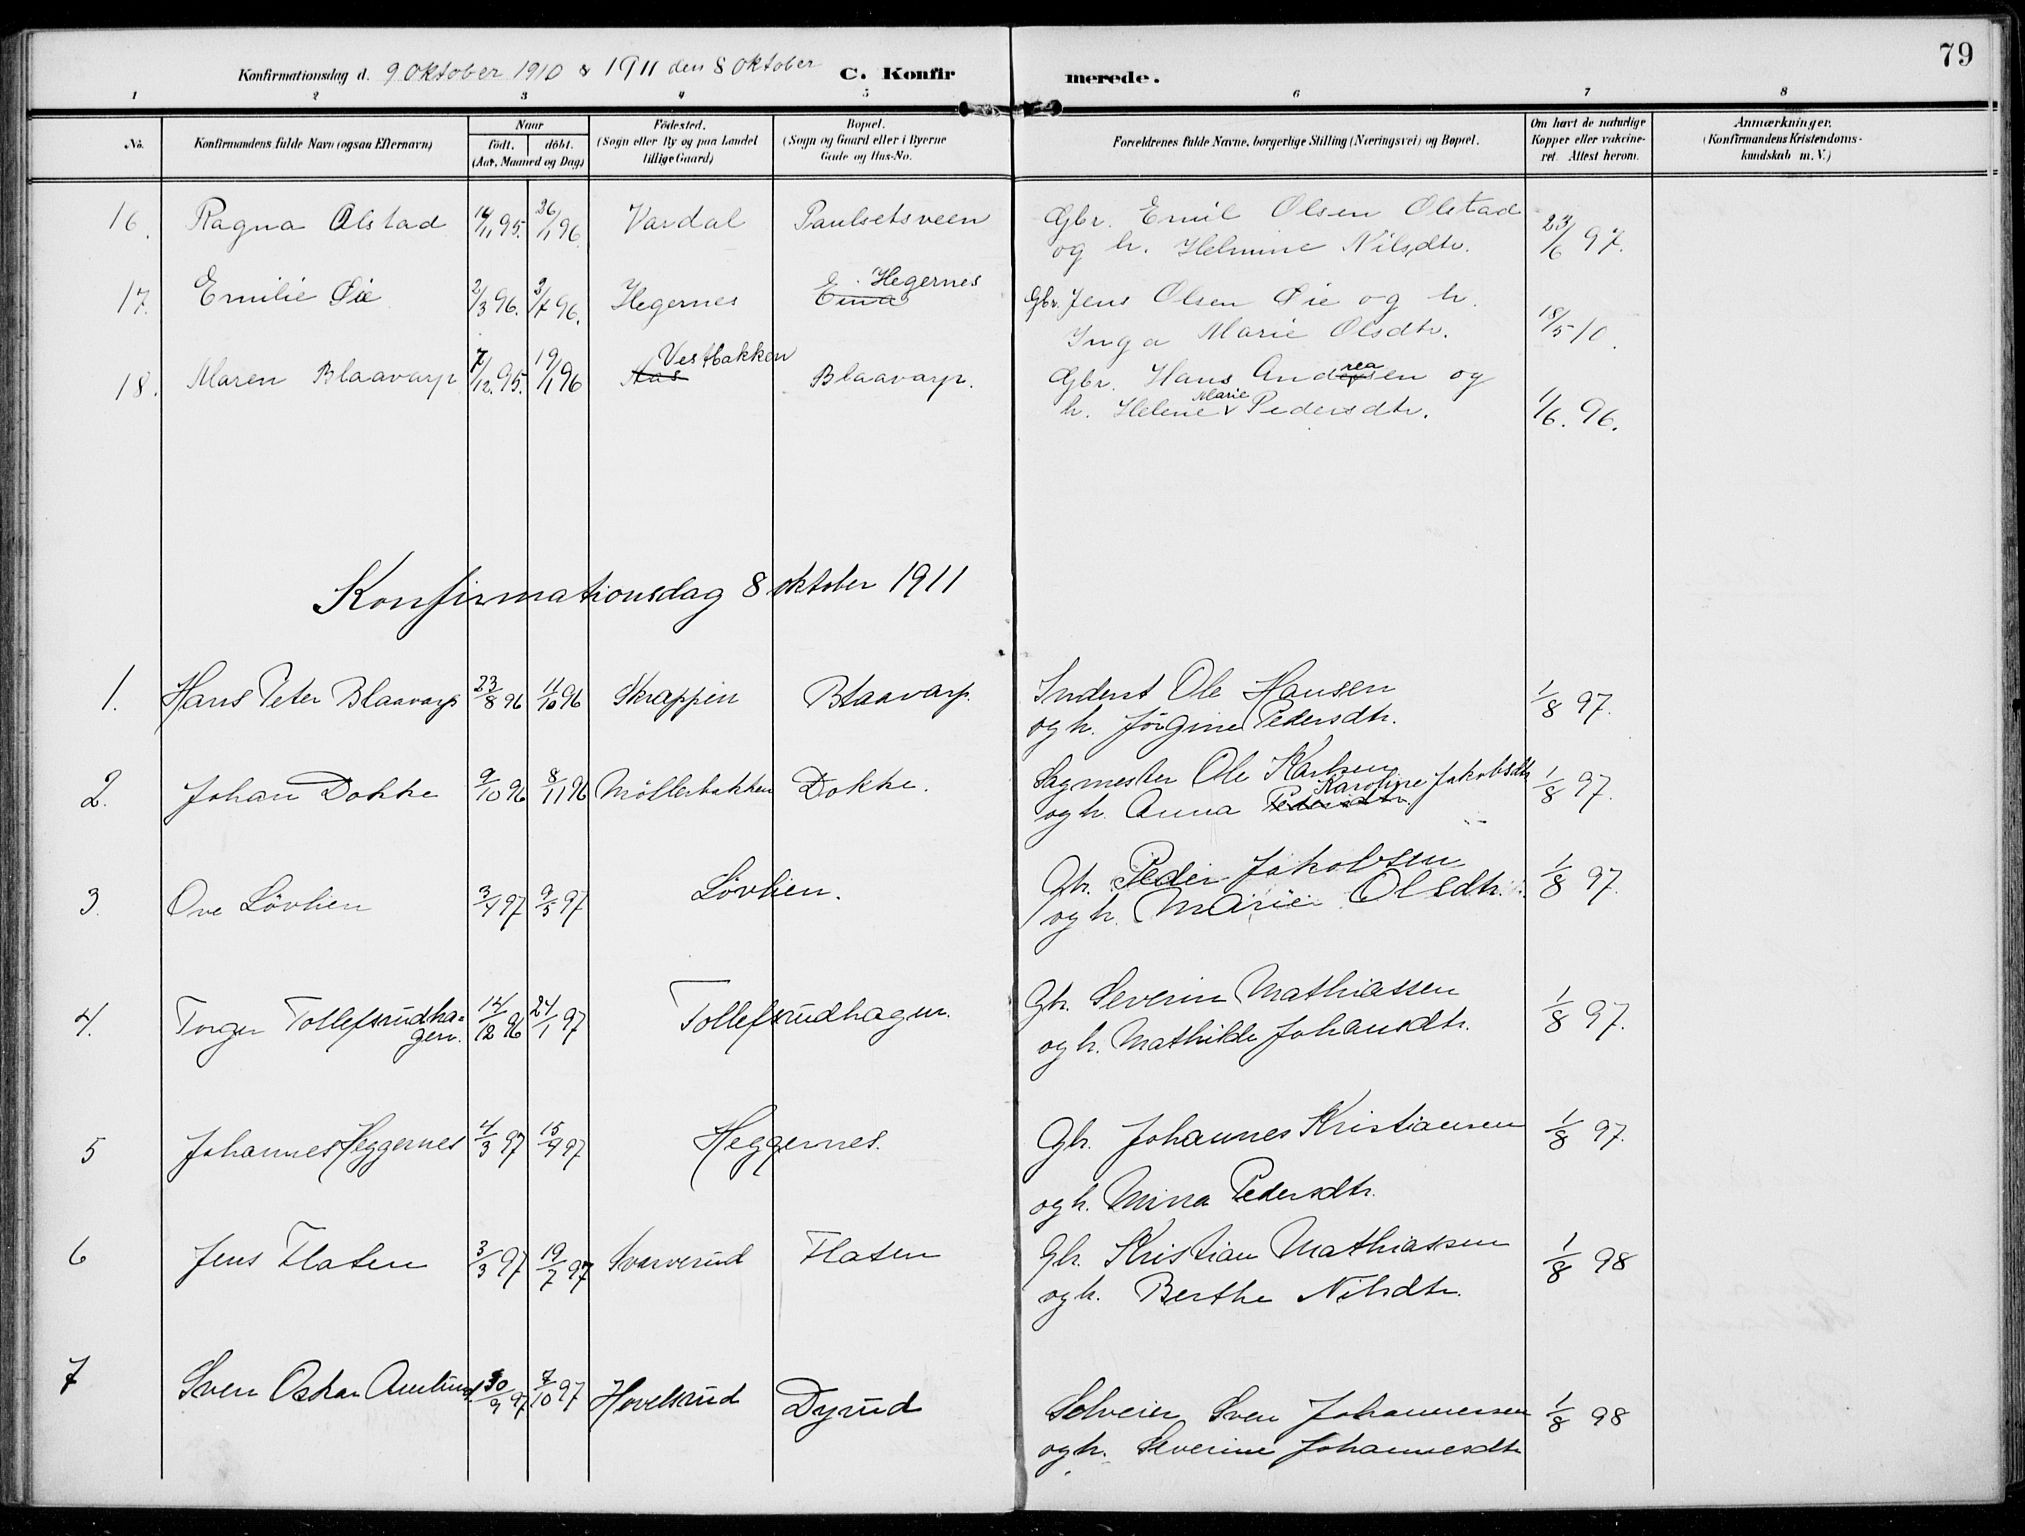 79
Konfirmationsdag d. 9 Oktober 1910 & 1911 den 8 Oktober C. Konfir merede.
1 2 3 4 5 6 7 8
No. Konfirmandens fulde Navn (ogsaa Efternavn) Naar födt. döbt. (Aar, Maaned og Dag) Födested. (Sogn eller By og paa Landet tillige Gaard) Bopæl. (Sogn og Gaard eller i Byerne Gade og Hus-No. Forældrenes fulde Navne, borgerlige Stilling (Næringsvei) og Bopæl. Om havt de naturlige Kopper eller vakcineret Attest herom. Anmærkninger. (Konfirmandens Kristendomskundskab m. V.)
16. Ragna Olstad 14/11 95. 26/1 96. Vardal Paulsetsveen Gbr. Emil Olsen Olstad 23/6 97.
og h. Helmine Nilsdtr.
17. Emilie Øie 2/3 96. 3/4 96. Hegernes Eina Hegernes Gbr. Jens Olsen Øie og h. 18/5 10.
Inga Marie Olsdtr.
18. Maren Blaavarp 7/12. 95. 19/1 96 Aas Vestbakken Blaavarp. Gbr. Hans Andersen rea og
h. Helene Marie Pedersdtr. 1/6. 96.
Konfirmationsdag 8 oktober 1911
1. Hans Peter Blaavarp 23/8 96 11/10 96 Skrappen Blaavarp. Inderst Ole Hansen 1/8 97.
og h. Jørgine Pedersdtr.
2. Johan Dokke 9/10 96 8/11 96 Möllerbakken Dokke. Sagmester Ole Karlsen 1/8 97.
og h. Anna Pedersdtr. Karoline Jakobsdtr
3. Ove Lövlien 3/4 97 9/5 97 Lövlien. Gbr. Peder Jakobsen 1/8 97.
og h. Marie Olsdtr.
4. Torger Tollefsrudha= 14/12 96 24/1 97 Tollefsrudhagen. Gbr. Severin Mathiassen 1/8 97.
gen. og h. Mathilde Johansdtr.
5 Johannes Heggernes 4/3 97 15/4 97 Heggernes. Gbr. Johannes Kristiansen 1/8 97.
og h. Mina Pedersdtr.
6 Jens Flaten 3/3 97 19/7 97 Svarverud Flaten Gbr. Kristian Mathiassen 1/8 98
og h. Berthe Nilsdtr.
7 Sven Oskar Amlund 30/9 97 7/10 97 Hovelsrud Dyrud Selveier Sven Johannessen 1/8 98
og h. Severine Johannesdtr